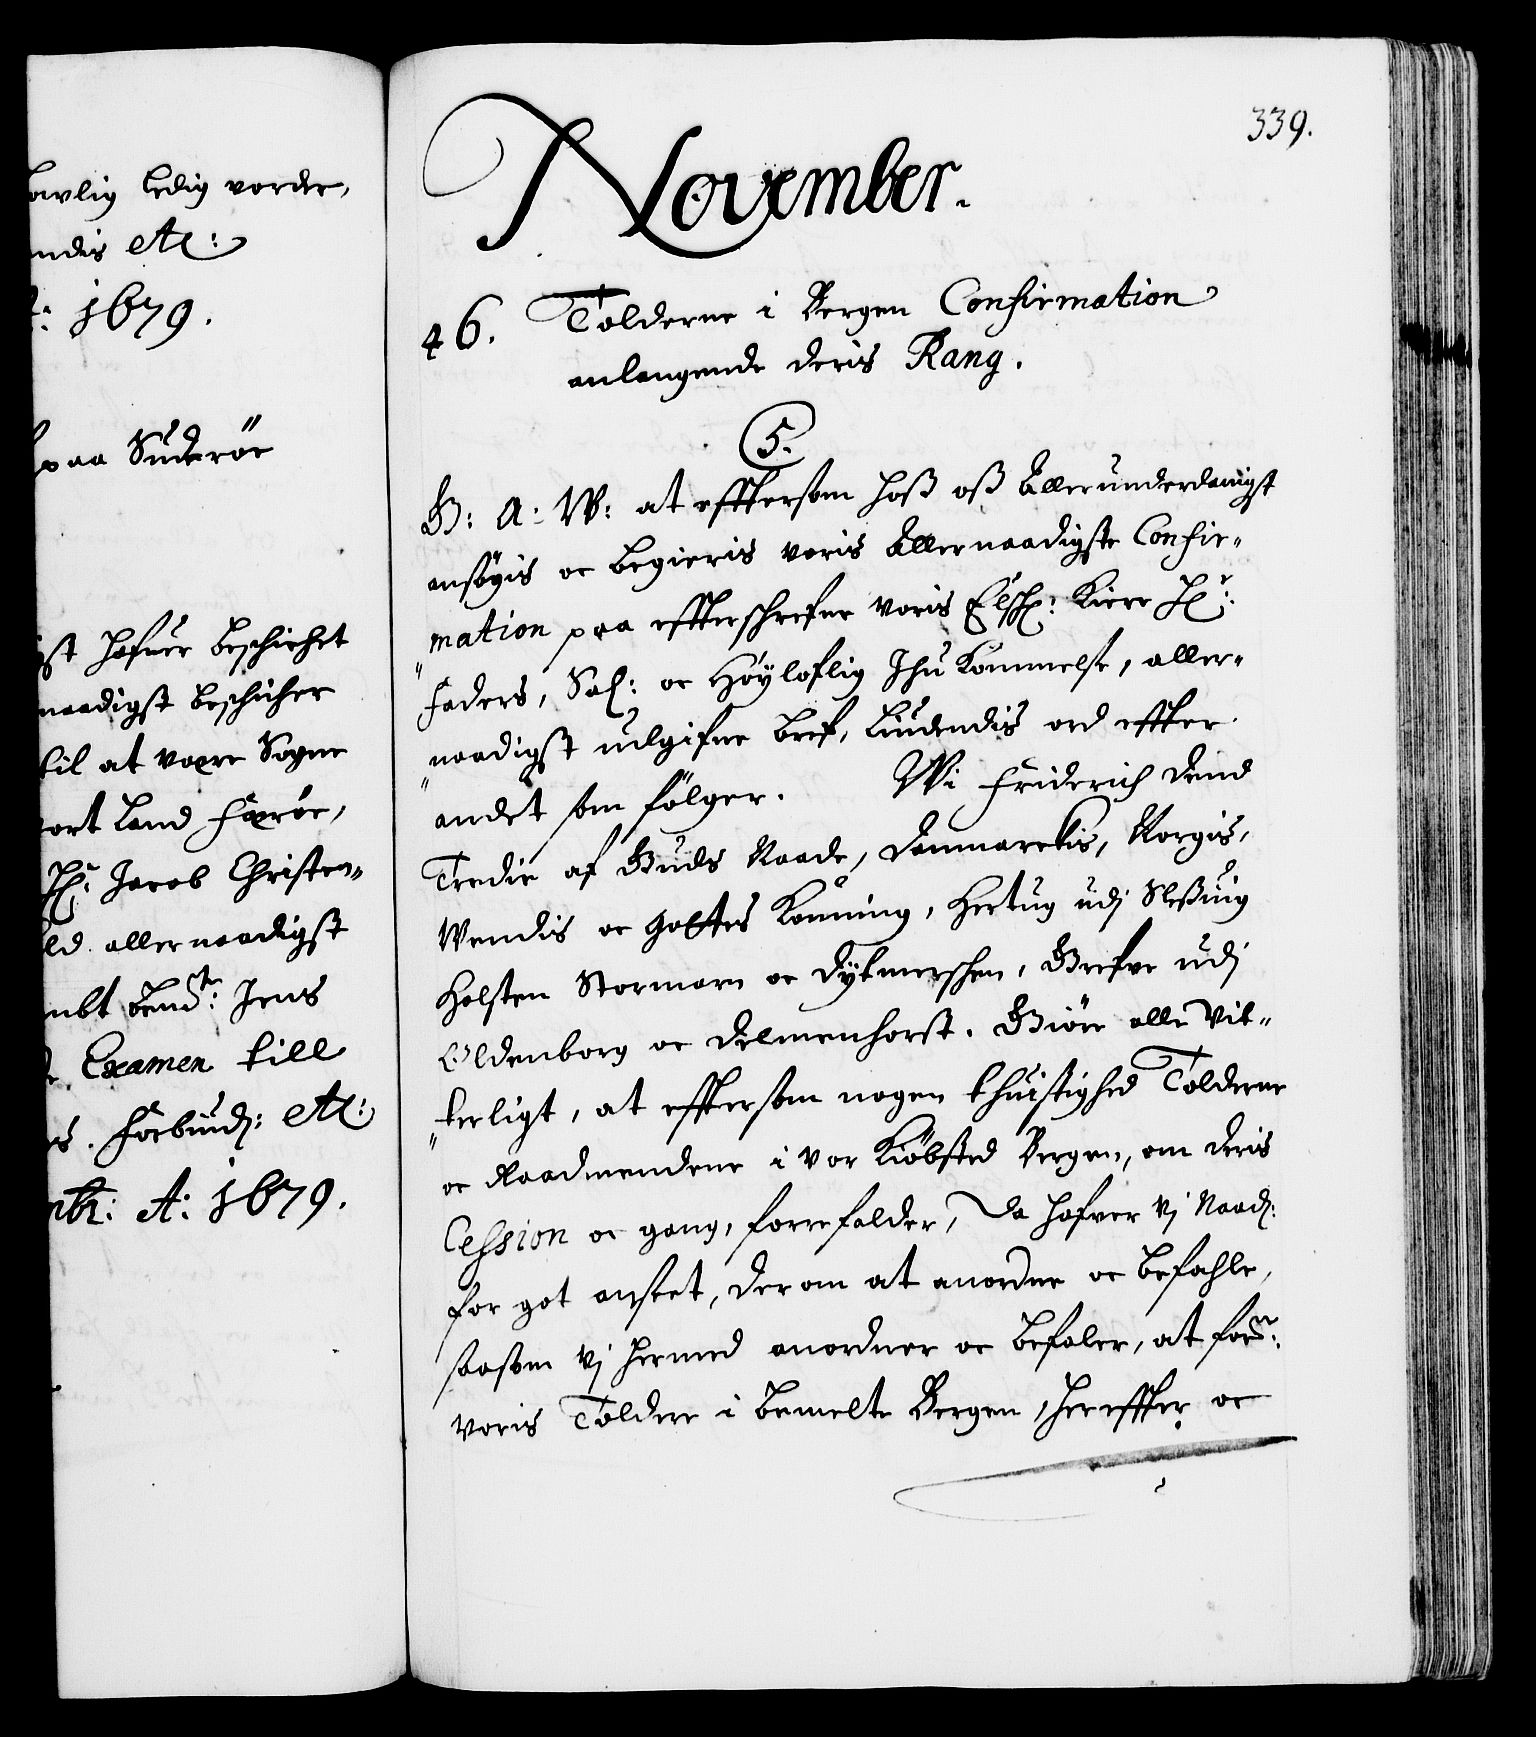 owlig ledig vorder,
ndis etc:
1679.
paa Suderöe
st hafuer beschichet
naadigst beschicker
til at være Sogne
vort Land Færöe,
Hr: Jacob Christen-
ld allernaadigst
mbt bemte: Jens
Examen till
s. Forbiud: etc:
mbr: A: 1679.
339.
November.
46. Tolderne i Bergen Confirmation
anlangende deris Rang.
5.
G: A: W: at efftersom hoß oß Allerunderdanigst
ansögis oc begieris voris Allernaadigste Confir-
mation paa effterschrefne voris Elschel: Kiere Hr:
Faders, Sal: oc Höyloflig Ihukommelse, aller-
naadigst udgifne bref, liudendis ord effter
andet som fölger. Wi Friderich dend
Tredie af Guds Naade, Danmarckis, Norgis,
Wendis oc Gottes Konning, Hertug udj Sleßuig
Holsten Stormarn oc Dytmerschen, Grefve udj
Oldenborg oc Delmenhorst. Giöre alle vit-
terligt, at efftersom nogen thuistighed Tolderne
oc Raadmendene i vor Kiöbsted Bergen, om deris
Cession oc gang, forrefalder, da hafver Vj Naad:
for got anseet, derom at anordne oc befahle,
saasom Vj hermed anordner oc befaler, at forne:
voris Toldere i bemelte Bergen, hereffter oc